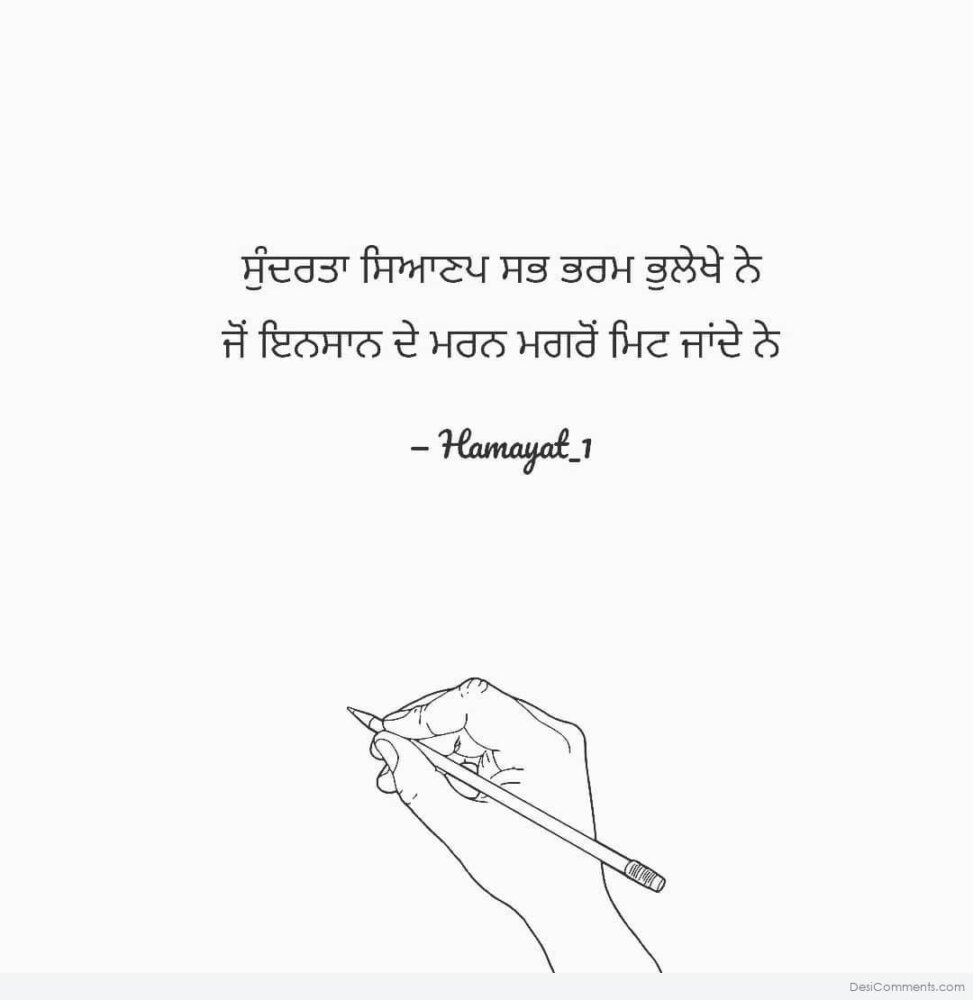 ਸੁੰਦਰਤਾ ਸਿਆਣਪ ਸਭ ਭਰਮ ਭੁਲੇਖੇ ਨੇ
ਜੋਂ ਇਨਸਾਨ ਦੇ ਮਰਨ ਮਗਰੋਂ ਮਿਟ ਜਾਂਦੇ ਨੇ
– Hamayat_1
DesiComments.com